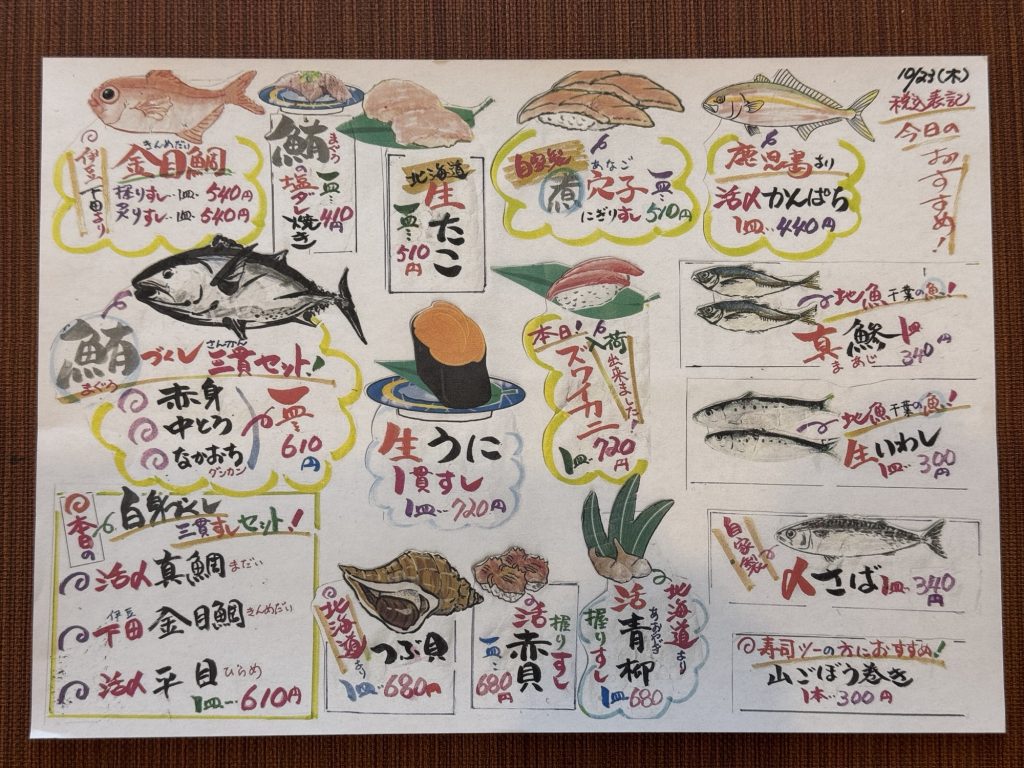 10/23(木)
税込表記
今日の
おすすめ!
きんめだい
金目鯛
伊豆下田より
握りすし…1皿…540円
炙りすし…1皿…540円
まぐろ
鮪の塩タレ焼き
一皿…410円
北海道
生たこ
一皿…510円
自家製
あなご
煮穴子
にぎりすし
一皿…510円
鹿児島より
活〆かんぱち
1皿…440円
鮪づくし
まぐろ
さんかん
三貫セット!
赤身
中とろ
なかおち
グンカン
一皿…610円
生うに
1貫すし
1皿…720円
本日!入荷出来ました!
ズワイカニ
1皿…720円
地魚千葉の魚!
真鯵
まあじ
1皿340円
地魚千葉の魚!
生いわし
1皿…300円
自家製
〆さば
1皿…340円
寿司ツーの方におすすめ!
山ごぼう巻き
1本…300円
本日の
白身づくし
三貫すしセット!
活〆真鯛
まだい
伊豆
下田金目鯛
きんめだい
活〆平目
ひらめ
1皿…610円
北海道より
つぶ貝
1皿…680円
活赤貝
握りすし
一皿…680円
北海道より
活青柳
あおやぎ
握りすし
1皿…680